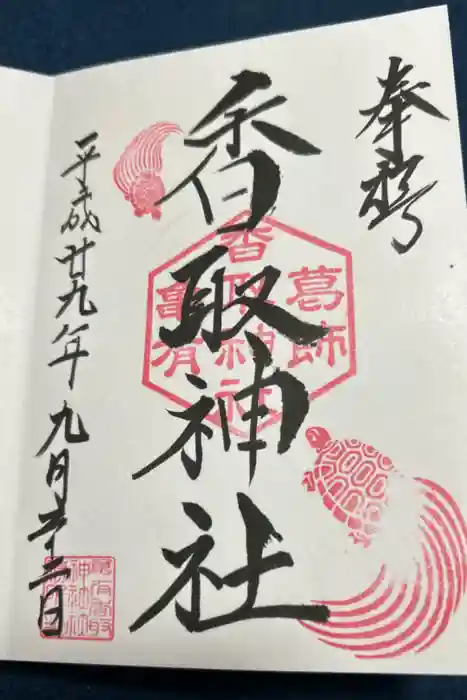 奉拝
香取神社
葛飾
香取神社
亀有
平成廿九年九月二日